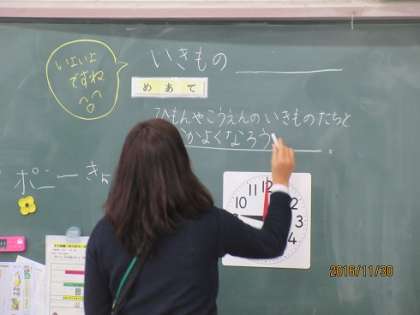 いよいよ
ですね
いきもの
めあて
ひもんやこうえんのいきものたちと
かよくなろう
ポニーきゃ
11 12
10
9
8
4
2016/11/30